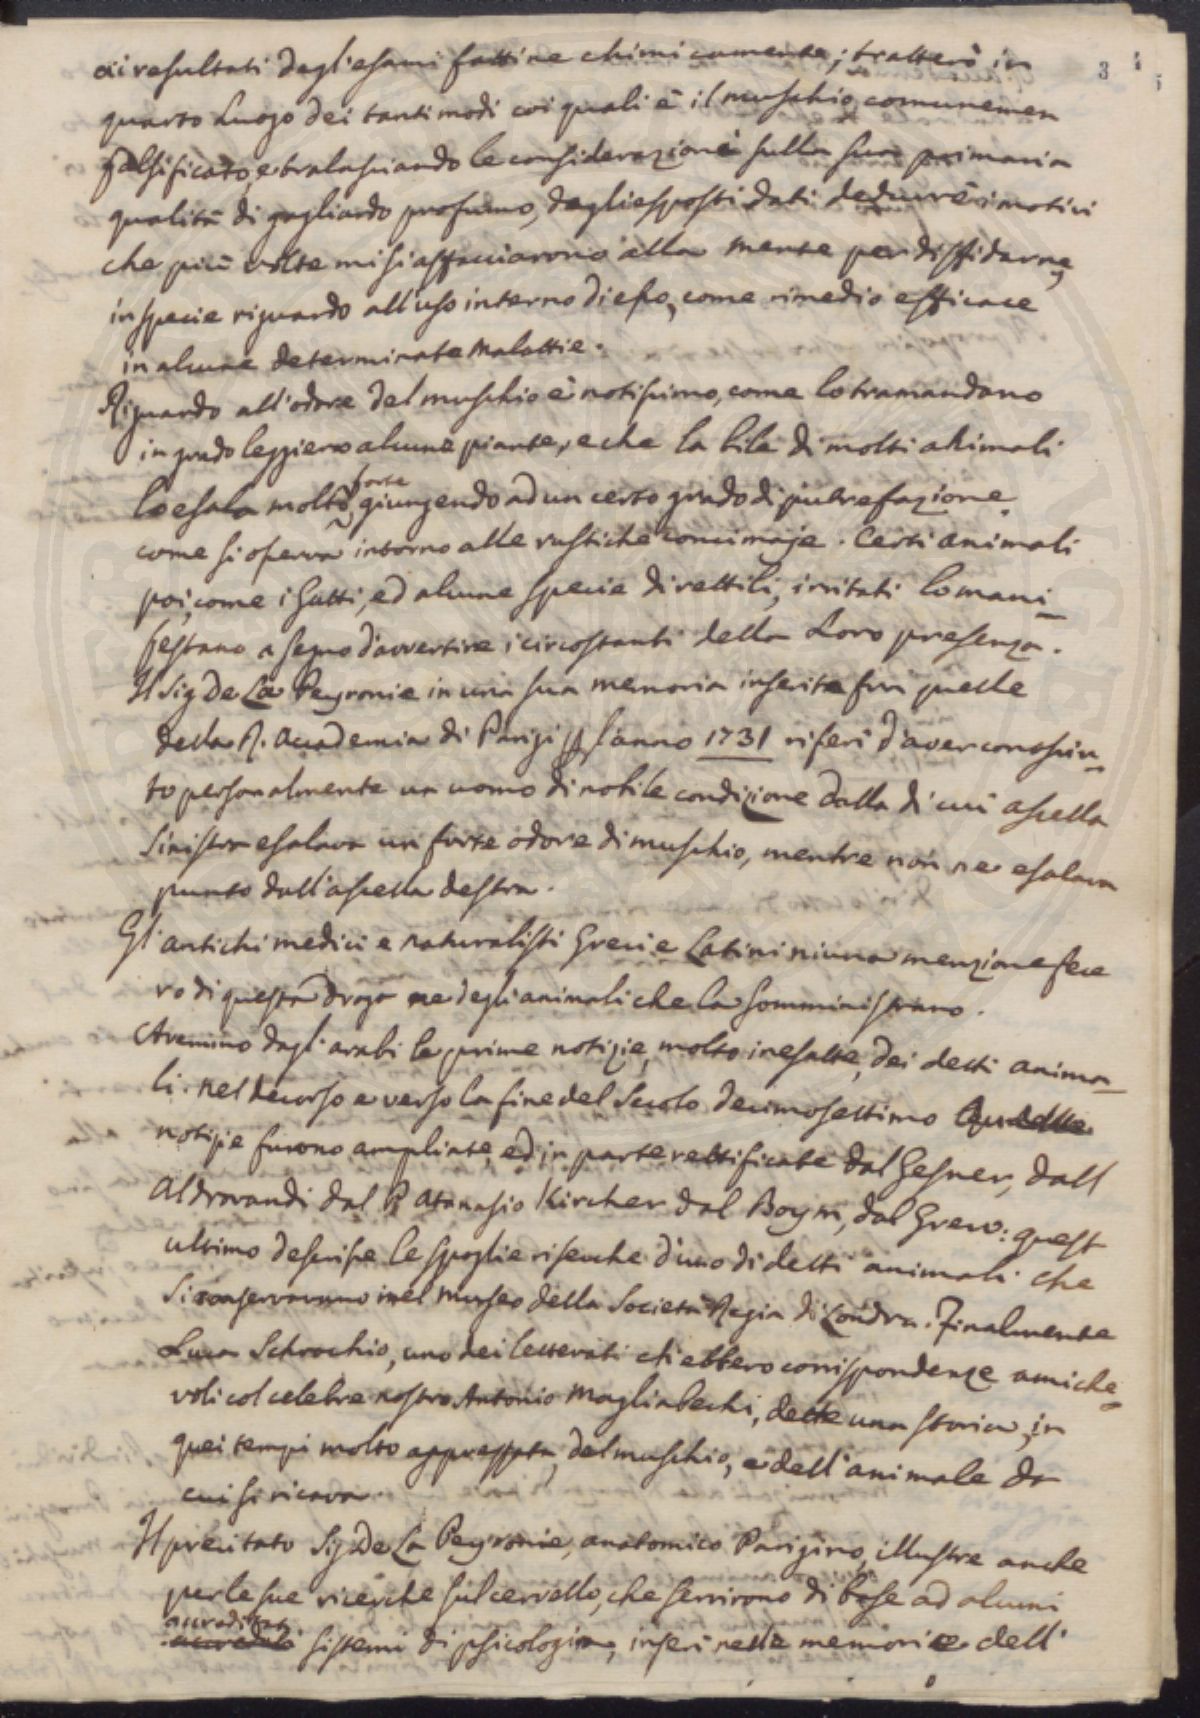 ai resultati degli esami fattine chimicamente; tratterò in
quarto luogo dei tanti modi coi quali è il muschio comunemen
falsificato, e tralasciando le considerazioni sulla sua primaria
qualità di gagliardo profumo, dagli esposti dati dedurrò i motivi
che più volte mi si affacciarono alla mente per diffidarne,
in specie riguardo all'uso interno di esso, come rimedio efficace
in alcune determinate malattie.
Riguardo all'odore del muschio è notissimo, come lo tramandano
in grado leggiero alcune piante, e che la bile di molti animali
lo esala molto forte, giungendo ad un certo grado di putrefazione,
come si osserva intorno alle rustiche concimaje. Certi animali
poi, come i Gatti, ed alcune specie di rettili, irritati lo mani-
festano a segno d'avvertire i circostanti della Loro presenza.
Il Sig De La Peyronie in una sua memoria inserita fra quelle
della R. Accademia di Parigi l'anno 1731 riferì d'aver conosciu-
to personalmente un uomo di nobile condizione dalla di cui ascella
sinistra esalava un forte odore di muschio, mentre non ne esalava
punto dall'ascella destra.
Gl'antichi medici e naturalisti Greci e Latini niuna menzione fece
ro di questa droga ne degli animali che la somministrano.
Avemmo dagl'arabi le prime notizie, molto inesatte, dei detti anima-
li. Nel decorso e verso la fine del Secolo decimosettimo
notizie furono ampliate, ed in parte rettificate dal Gesner, dall
Aldrovandi dal P. Atanasio Kircher dal Boym, dal Grew: quest
ultimo descrisse le spoglie risecche d'uno di detti animali che
si conservavano nel Museo della Società Regia di Londra. Finalmente
Luca Schrochio, uno dei letterati ch'ebbero corrispondenze amiche-
voli col celebre nostro Antonio Magliabechi, dette una storia, in
quei tempi molto apprezzata, del muschio, e dell'animale da
cui si ricava.
Il precitato Sig. De La Peyronie, anatomico Parigino, illustre anche
per le sue ricerche sul cervello, che servirono di base ad alcuni
accreditati sistemi di psicologia, inserì nelle memorie dell'